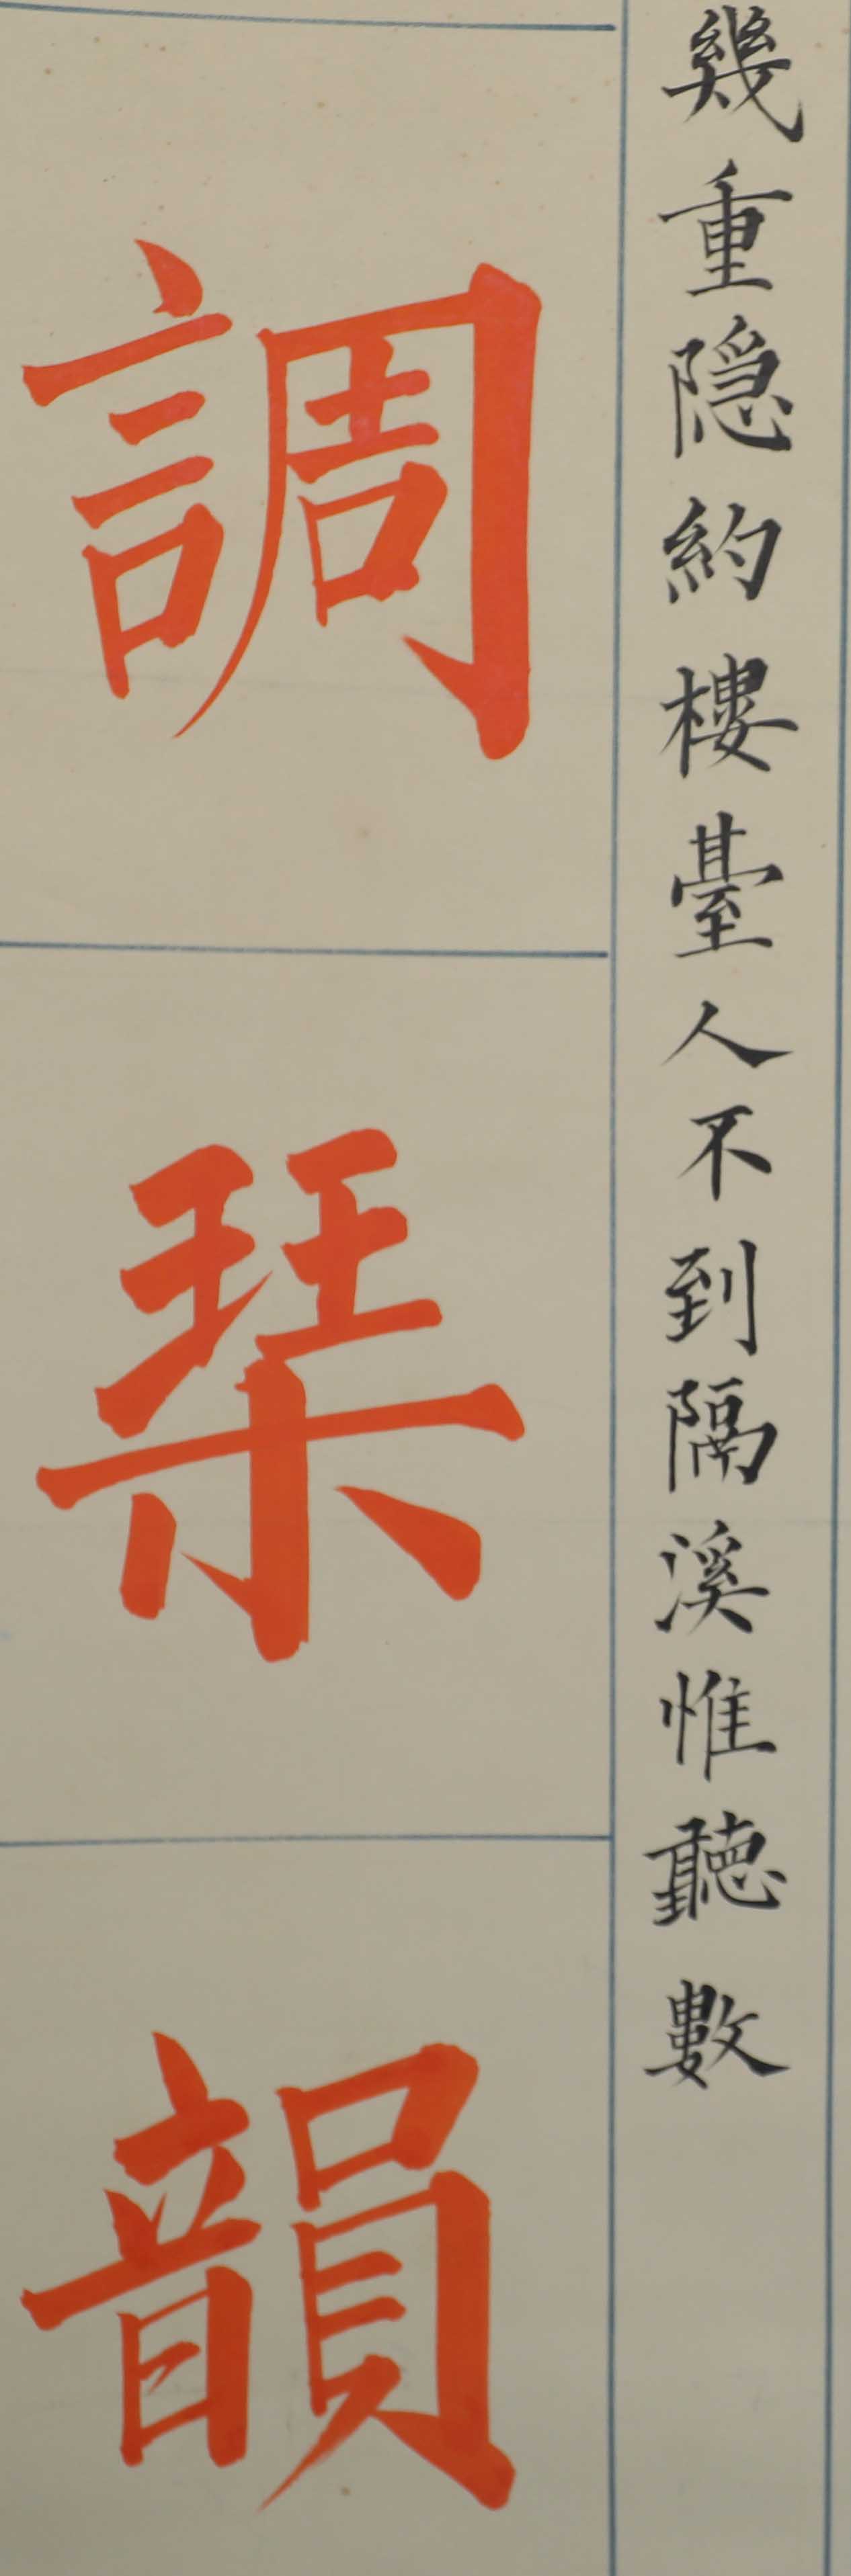 幾重隐約樓臺人不到隔溪惟聽數
調琹韻